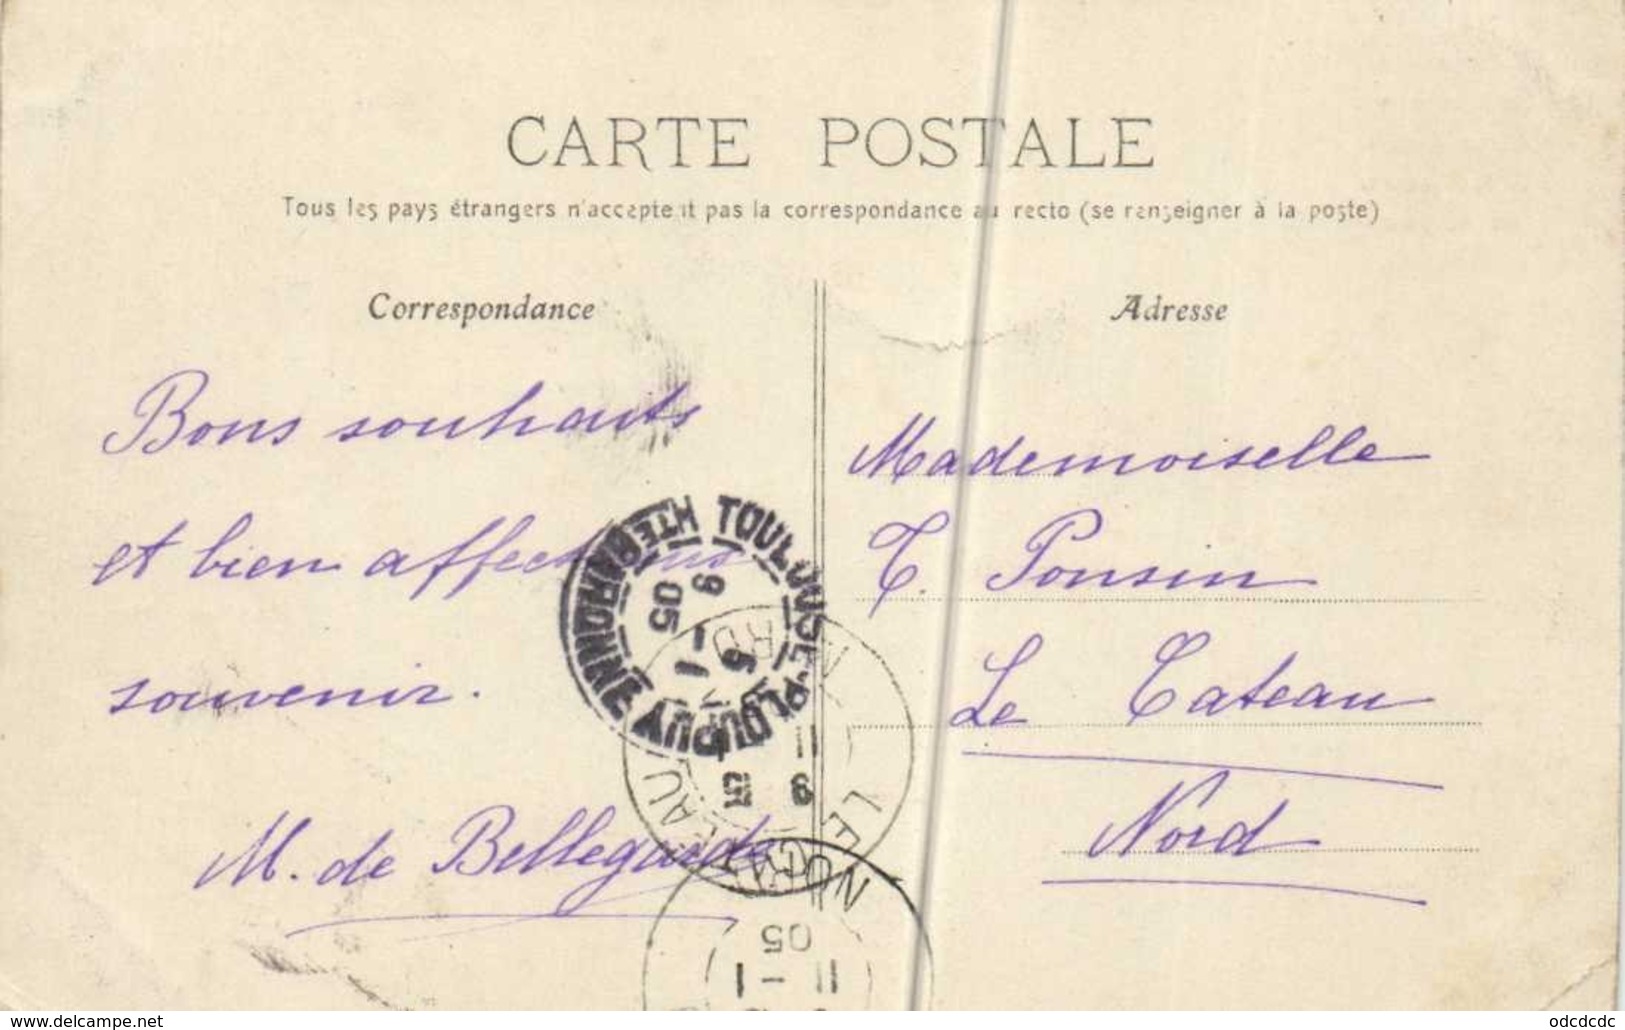 CARTE POSTALE
Tous les pays étrangers n'acceptent pas la correspondance au recto (se renseigner à la poste)
Correspondance
Bons souhaits
et bien affectueux
souvenir.
M. de Bellegarde
Adresse
Mademoiselle
T. Ponsin
Le Cateau
Nord
TOULOUSE-PL. DUPUY
HTE GARONNE
5
9 - 1
05
LE CATEAU
NORD
11 - 1
05
www.delcampe.net
odcdcdc